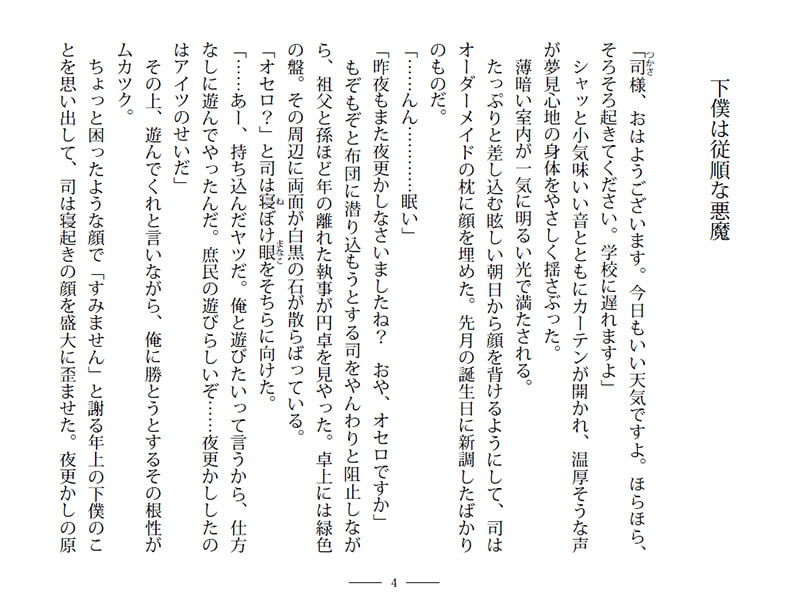 下僕は従順な悪魔
「司様、おはようございます。今日もいい天気ですよ。ほらほら、
つかさ
そろそろ起きてください。学校に遅れますよ」
シャッと小気味いい音とともにカーテンが開かれ、温厚そうな声
が夢見心地の身体をやさしく揺さぶった。
薄暗い室内が一気に明るい光で満たされる。
たっぷりと差し込む眩しい朝日から顔を背けるようにして、司は
オーダーメイドの枕に顔を埋めた。先月の誕生日に新調したばかり
のものだ。
「……んん…………眠い」
「昨夜もまた夜更かしなさいましたね？　おや、オセロですか」
もぞもぞと布団に潜り込もうとする司をやんわりと阻止しなが
ら、祖父と孫ほど年の離れた執事が円卓を見やった。卓上には緑色
の盤。その周辺に両面が白黒の石が散らばっている。
「オセロ？」と司は寝ぼけ眼をそちらに向けた。
ね
まなこ
「……あー、持ち込んだヤツだ。俺と遊びたいって言うから、仕方
なしに遊んでやったんだ。庶民の遊びらしいぞ……夜更かししたの
はアイツのせいだ」
その上、遊んでくれと言いながら、俺に勝とうとするその根性が
ムカツク。
ちょっと困ったような顔で「すみません」と謝る年上の下僕のこ
とを思い出して、司は寝起きの顔を盛大に歪ませた。夜更かしの原
4